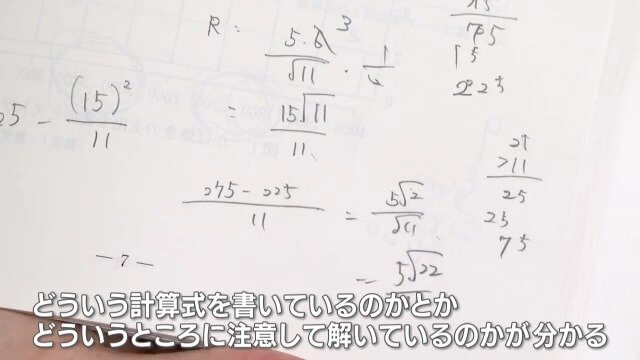 R = (5·6)/√11 · 1/2 3
= 15√11/11
25 − (15)²/11
(275 − 225)/11 = 5√2/√11
= 5√22
15
75
15
225
25
×11
25
25
75
− 7 −
どういう計算式を書いているのかとか
どういうところに注意して解いているのかが分かる